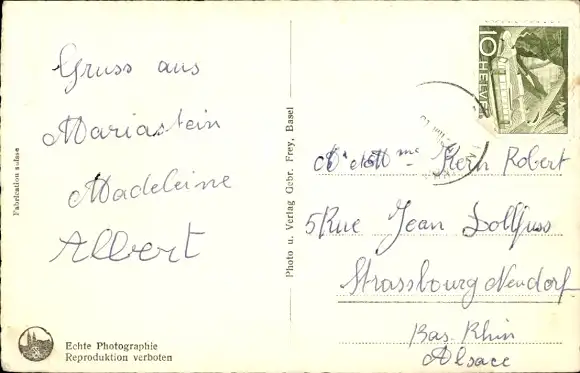 Gruss aus
Mariastein
Madeleine
Albert
Fabrication suisse
Echte Photographie
Reproduktion verboten
Photo u. Verlag Gebr. Frey, Basel
10 HELVETIA
Mr et Mme Kern Robert
5 Rue Jean Dollfuss
Strassbourg Neudorf
Bas. Rhin
Alsace